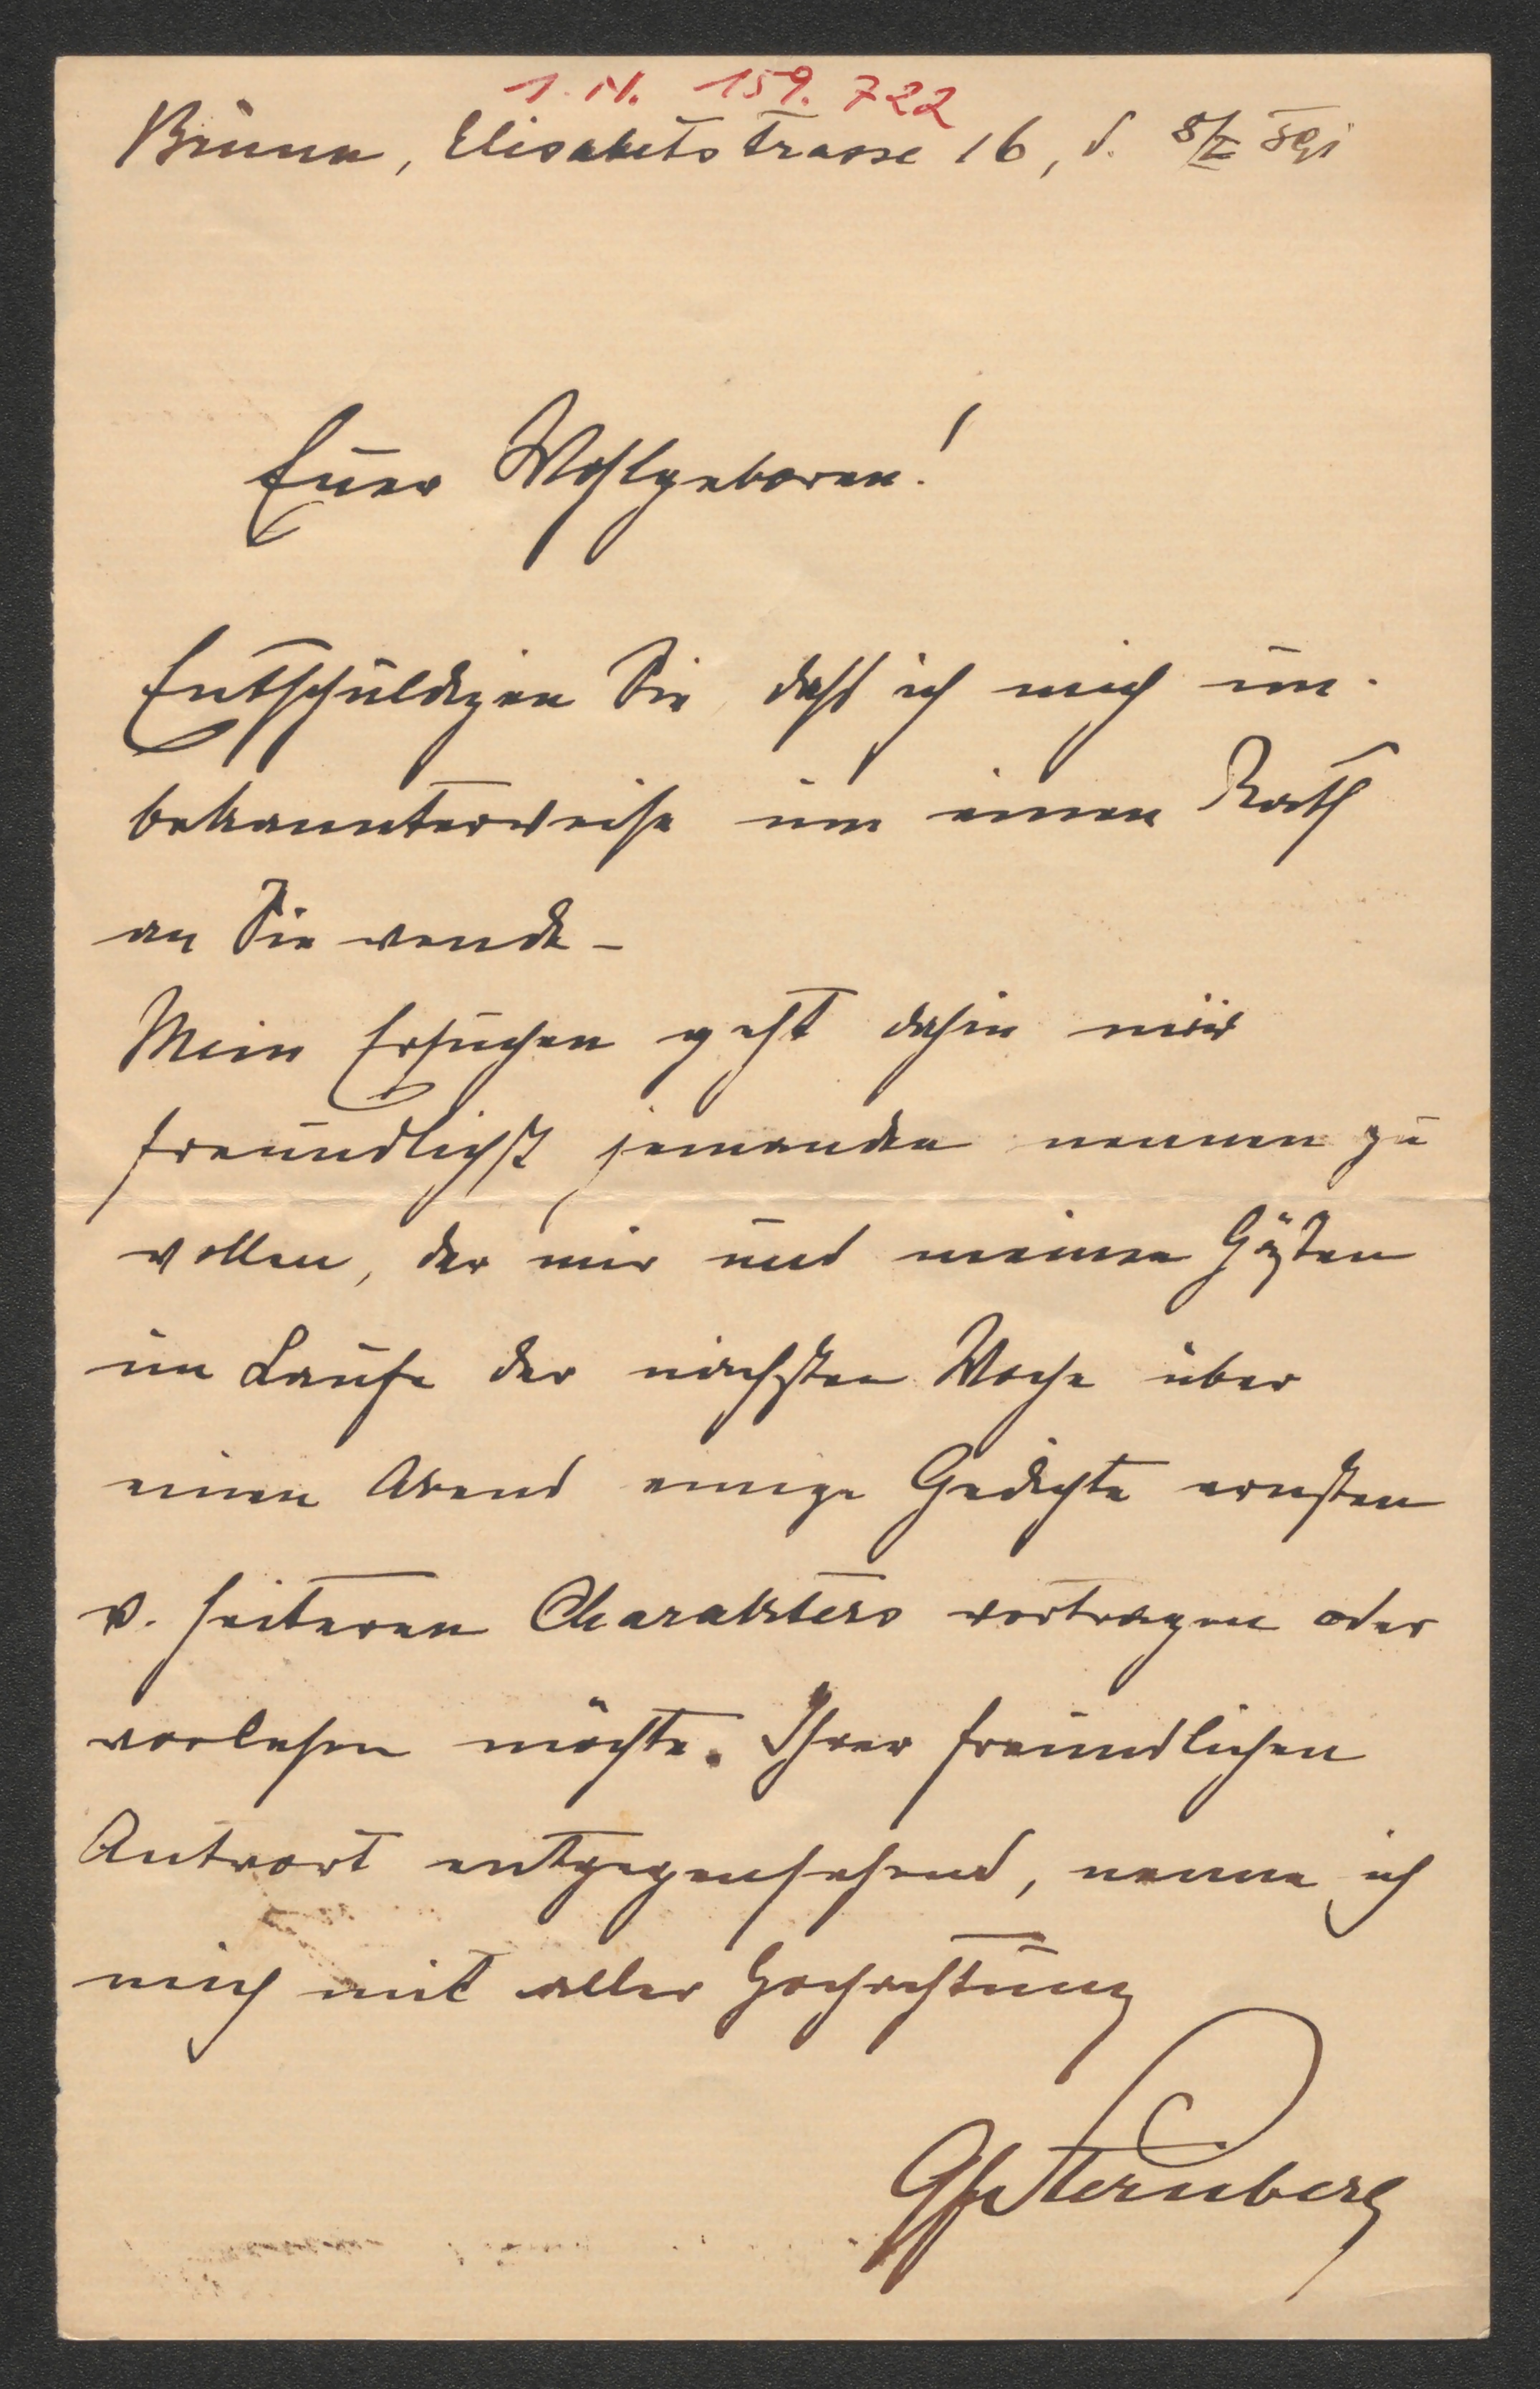 I. N. 159.722
Brünn, Elisabetstrasse 16, d. 8/I 891
Euer Wohlgeboren!
Entschuldigen Sie, daß ich mich un-
bekannterweise um einen Rath
an Sie wende –
Mein Ersuchen geht dahin mir
freundlichst jemanden nennen zu
wollen, der mir und meinen Gästen
im Laufe der nächsten Woche über
einen Abend einige Gedichte ernsten
u. heiteren Charakters vortragen oder
vorlesen möchte. Ihrer freundlichen
Antwort entgegensehend, nenne ich
mich mit aller Hochachtung
Sternberg